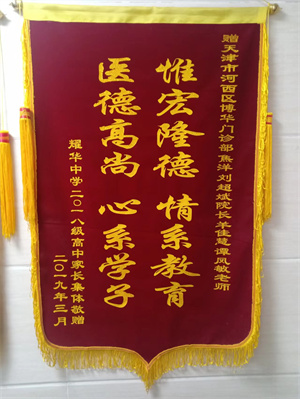 赠天津市河西区博华门诊部燕洋刘超斌院长羊佳慧谭凤敏老师
惟宏隆德 情系教育
医德高尚 心系学子
耀华中学二〇一八级高中家长集体敬赠
二〇一九年三月